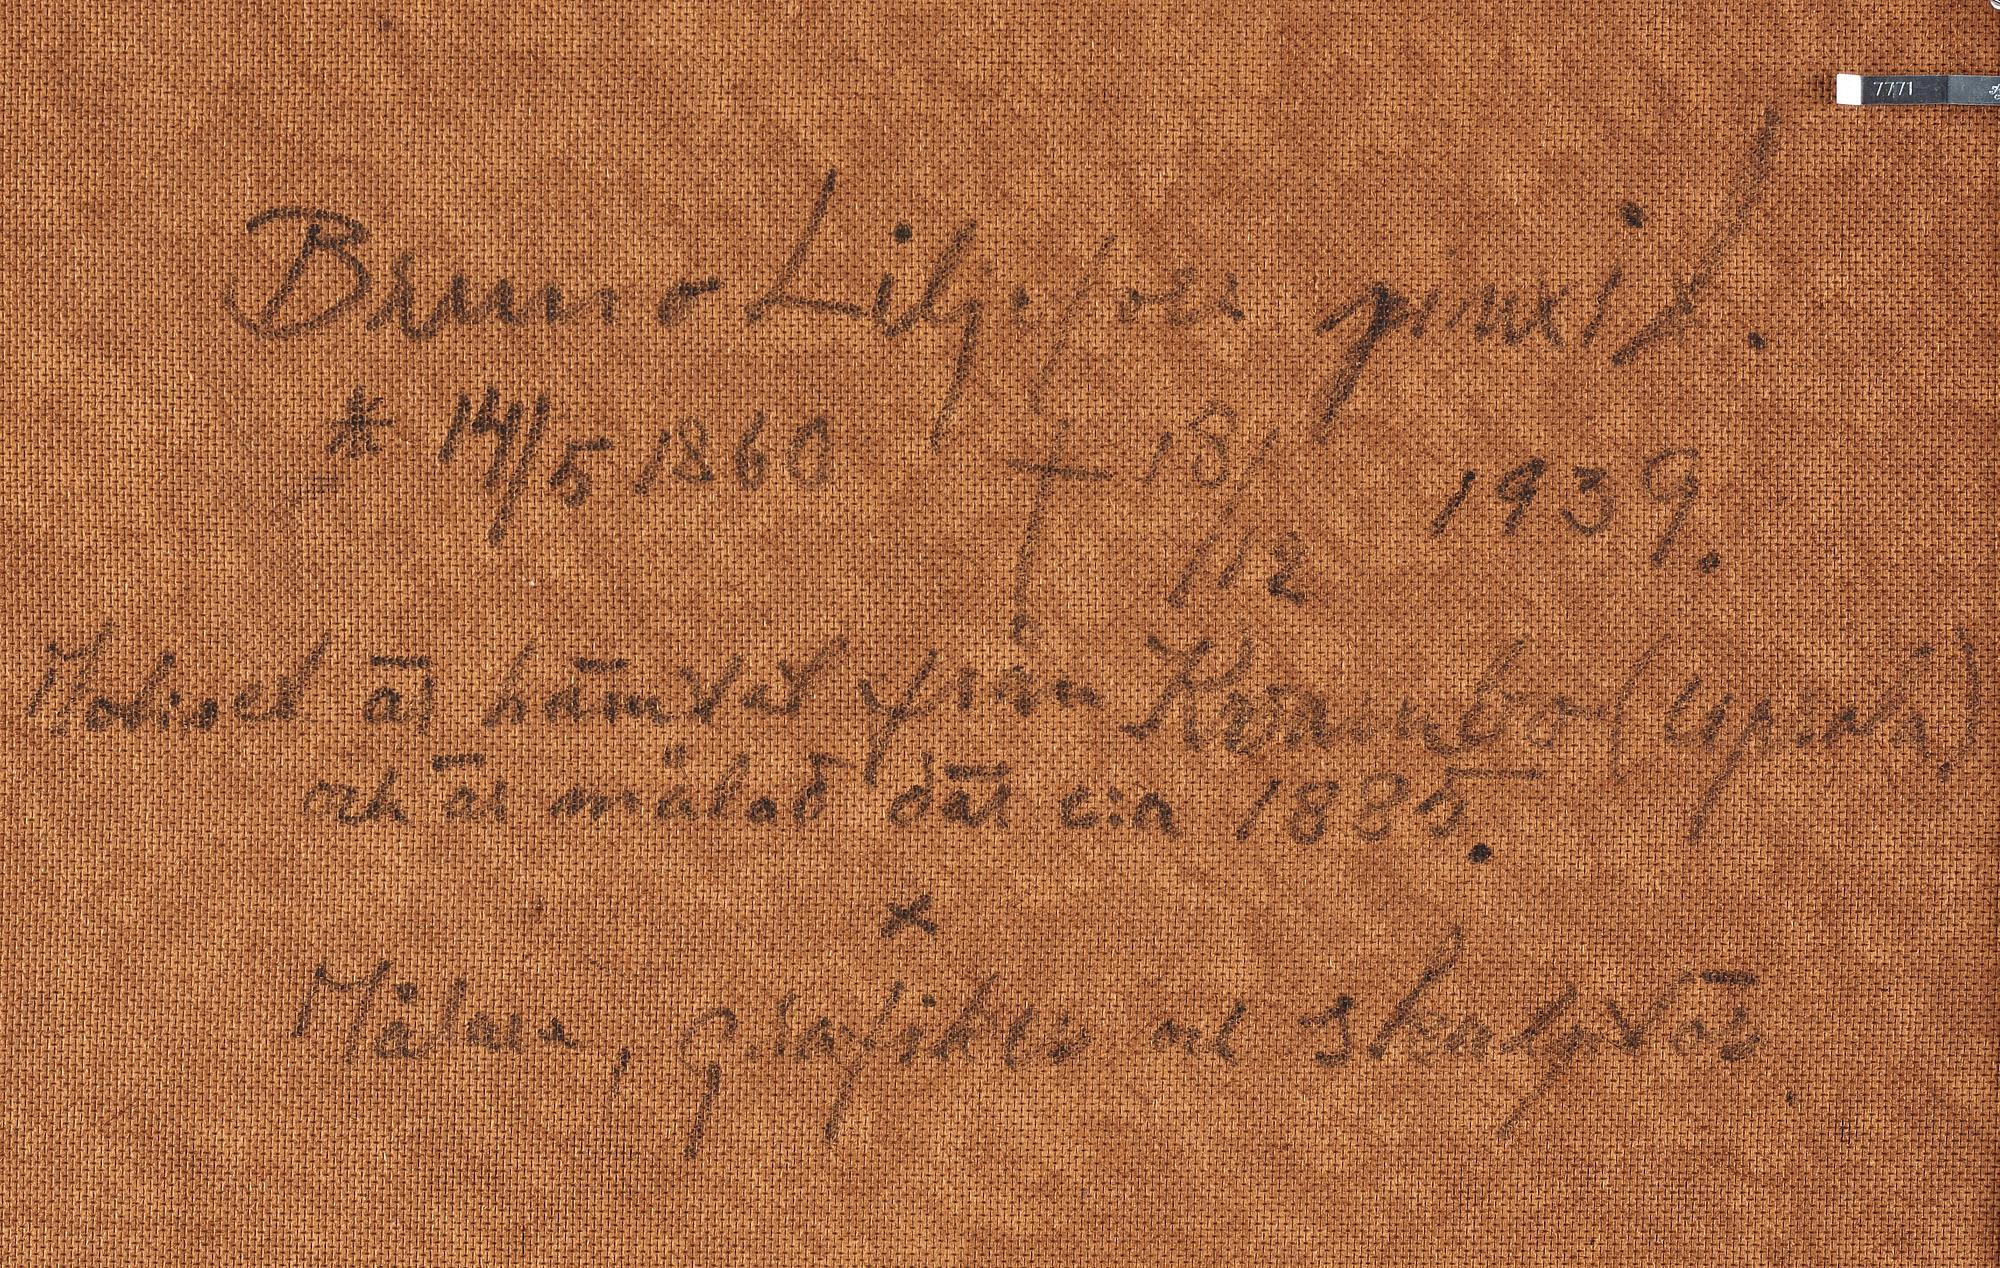 7771
Bruno Liljefors pinxit.
* 14/5 1860 † 18/12 1939.
Motivet är hämtat från Kvarnbo (Uppsala)
och är målad där c:a 1885.
x
Målare, grafiker och skulptör